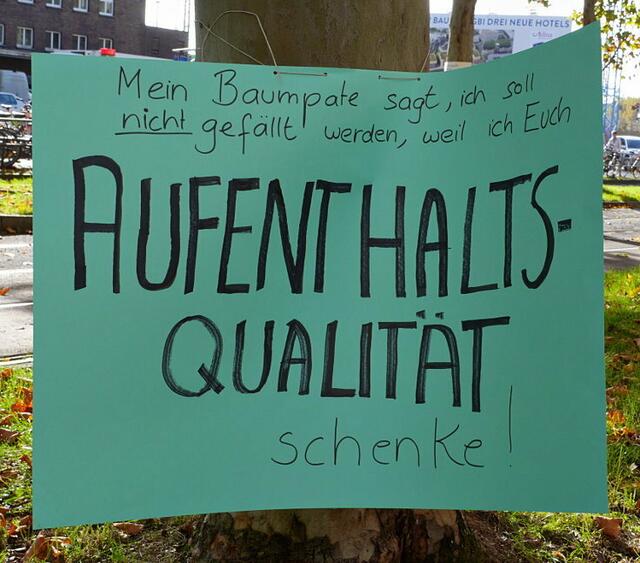 BI DREI NEUE HOTELS
Mein Baumpate sagt, ich soll
nicht gefällt werden, weil ich Euch
AUFENTHALTS-
QUALITÄT
schenke!